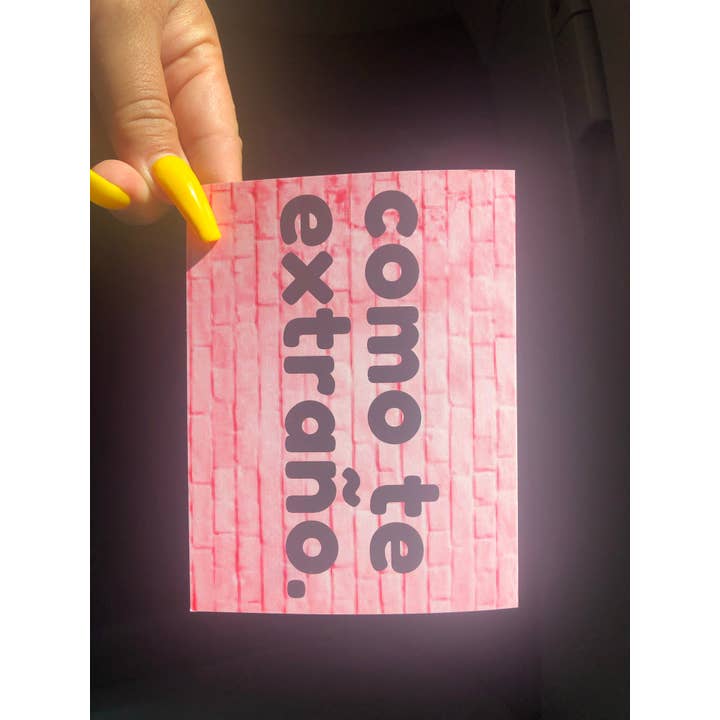 como te
extraño.